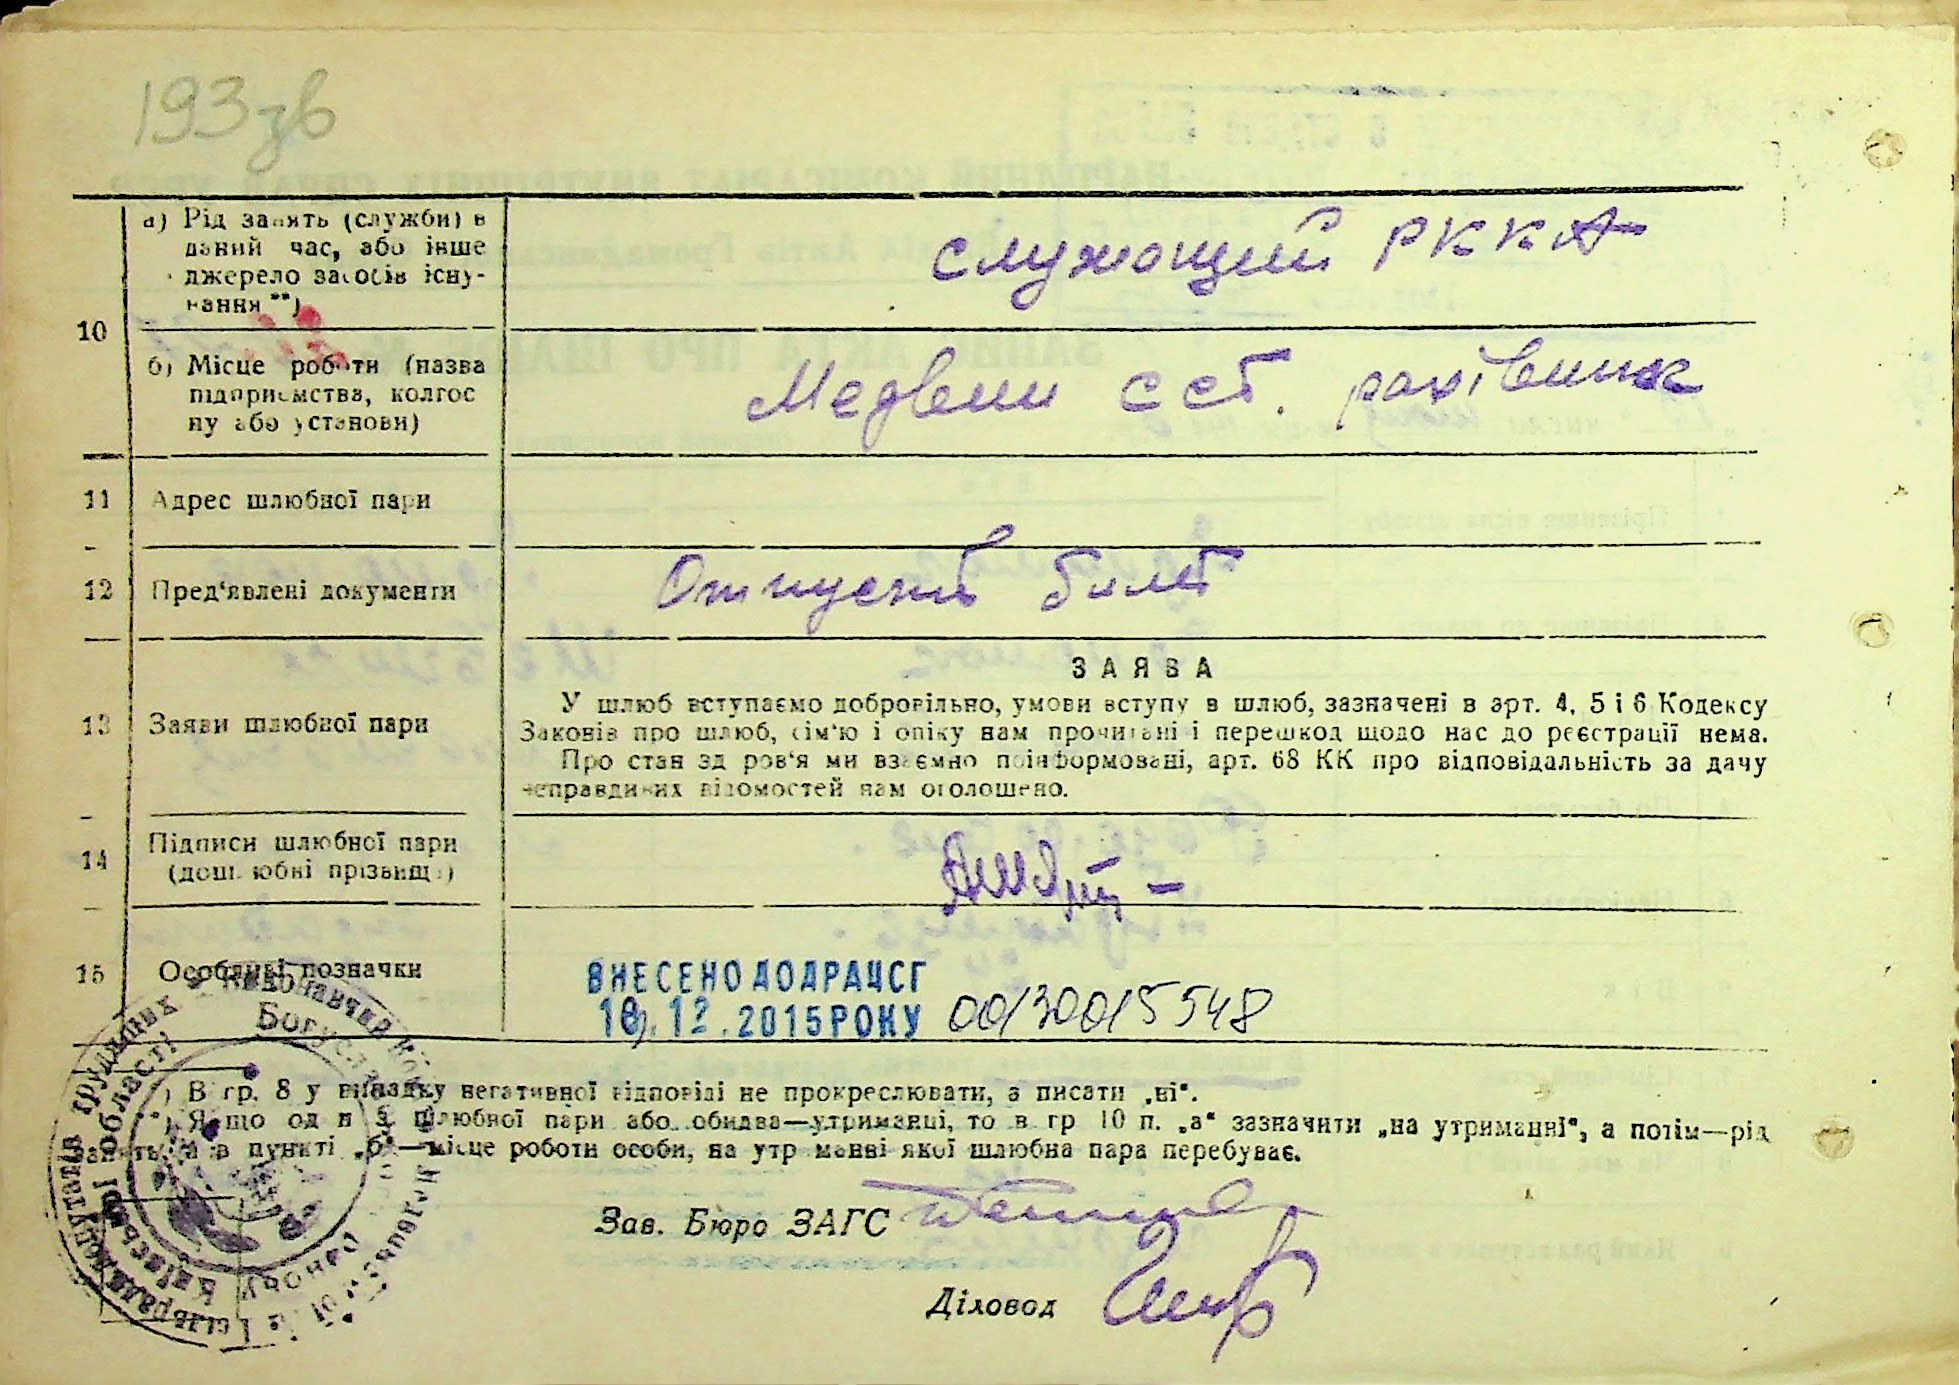 193зв
10
а) Рід занять (служби) в
даний час, або інше
джерело засобів існу-
вання **)
служощий РККА
б) Місце роботи (назва
підприємства, колгос
пу або установи)
Медвени ССТ. рахівник
11 Адрес шлюбної пари
12 Пред'явлені документи
Отпускний билет
13 Заяви шлюбної пари
ЗАЯВА
У шлюб вступаємо добровільно, умови вступу в шлюб, зазначені в арт. 4, 5 і 6 Кодексу
Законів про шлюб, сім'ю і опіку нам прочитані і перешкод щодо нас до реєстрації нема.
Про стан здоров'я ми взаємно поінформовані, арт. 68 КК про відповідальність за дачу
неправдивих відомостей нам оголошено.
14 Підписи шлюбної пари
(дошлюбні прізвища)
15 Особливі позначки
ВНЕСЕНО ДО ДРАЦСГ
18.12.2015 РОКУ 00130015548
*) В гр. 8 у випадку негативної відповіді не прокреслювати, а писати „ні“.
**) Якщо один з шлюбної пари або обидва—утриманці, то в гр 10 п. „а“ зазначити „на утриманні“, а потім—рід
занять, а в пункті „б“—місце роботи особи, на утриманні якої шлюбна пара перебуває.
Зав. Бюро ЗАГС
Діловод
Виконавчий
Богуслав
району
Київської області
депутатів трудящих